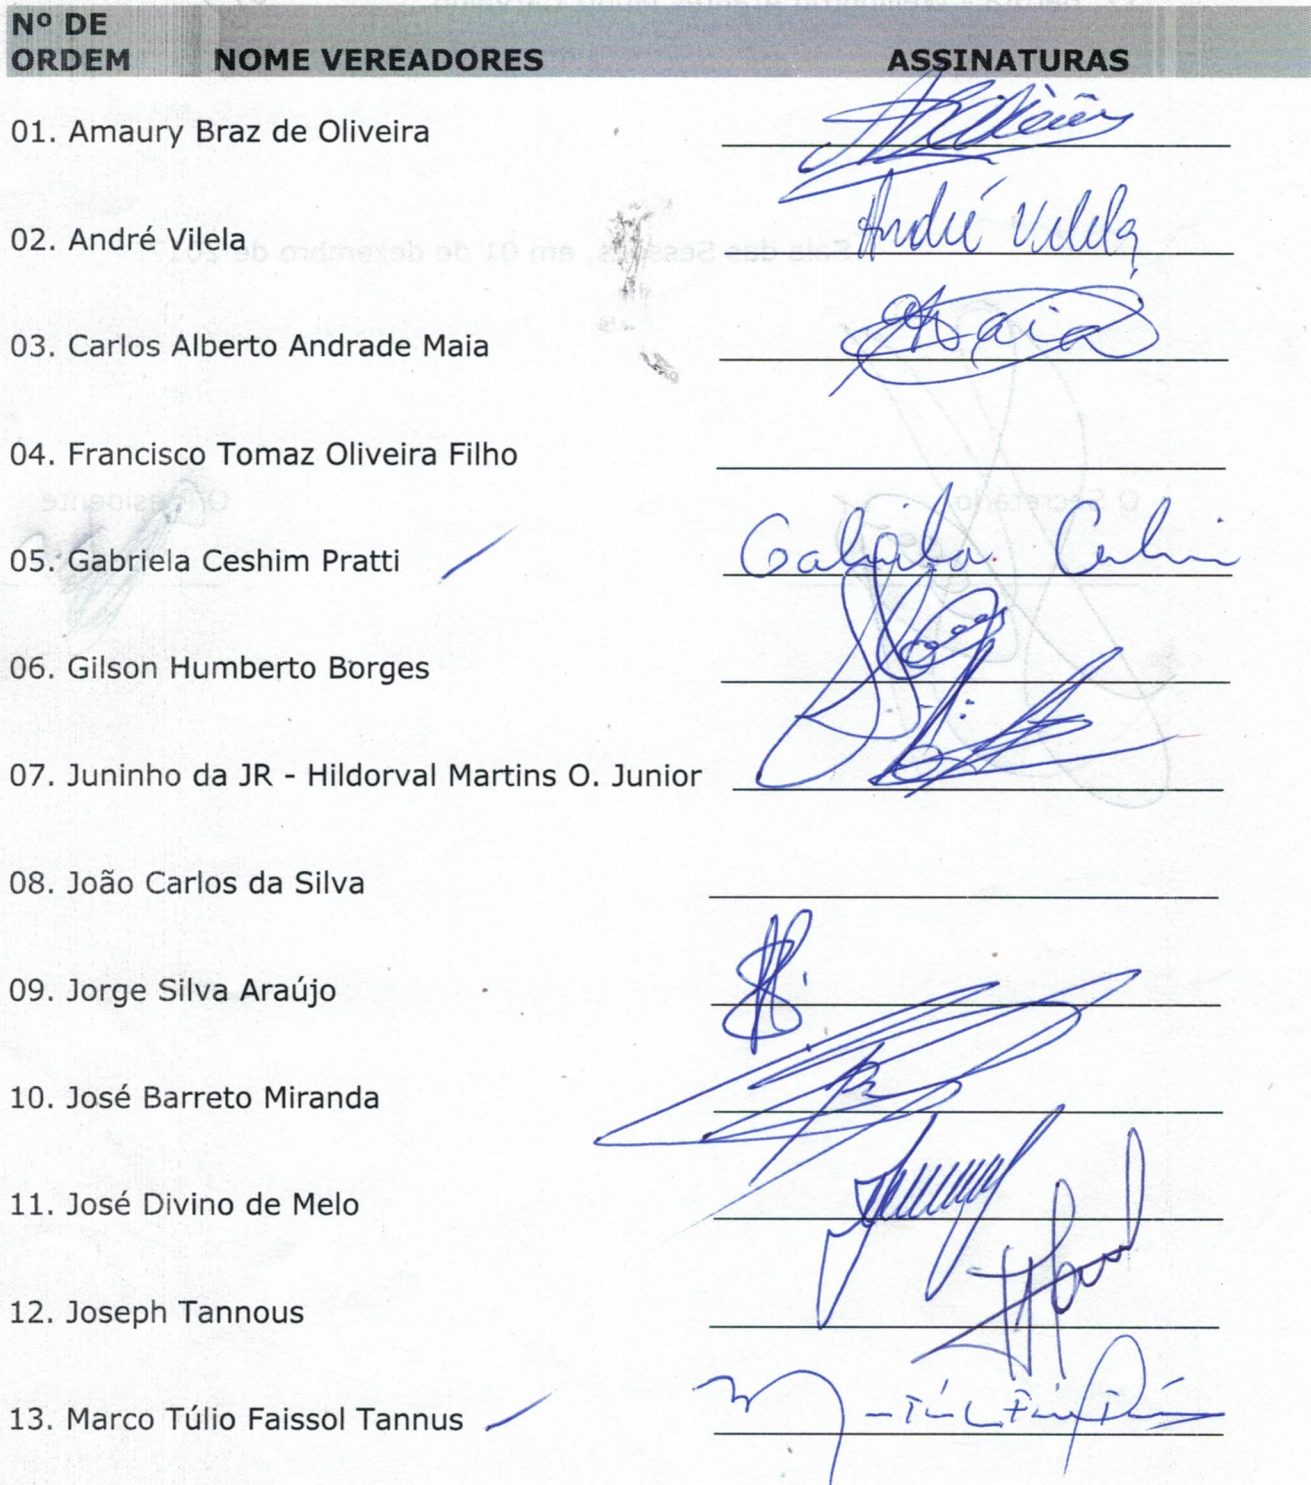 Nº DE
ORDEM NOME VEREADORES ASSINATURAS
01. Amaury Braz de Oliveira
02. André Vilela André Vilela
03. Carlos Alberto Andrade Maia Maia
04. Francisco Tomaz Oliveira Filho
05. Gabriela Ceshim Pratti Gabriela
06. Gilson Humberto Borges
07. Juninho da JR - Hildorval Martins O. Junior
08. João Carlos da Silva
09. Jorge Silva Araújo
10. José Barreto Miranda
11. José Divino de Melo
12. Joseph Tannous
13. Marco Túlio Faissol Tannus